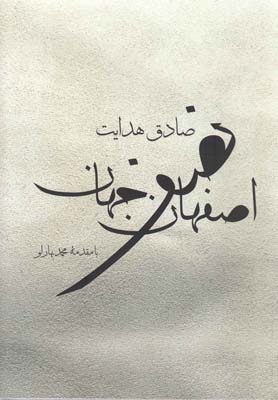 صادق هدایت
اصفهان نصف جهان
با مقدمهٔ محمد بهارلو